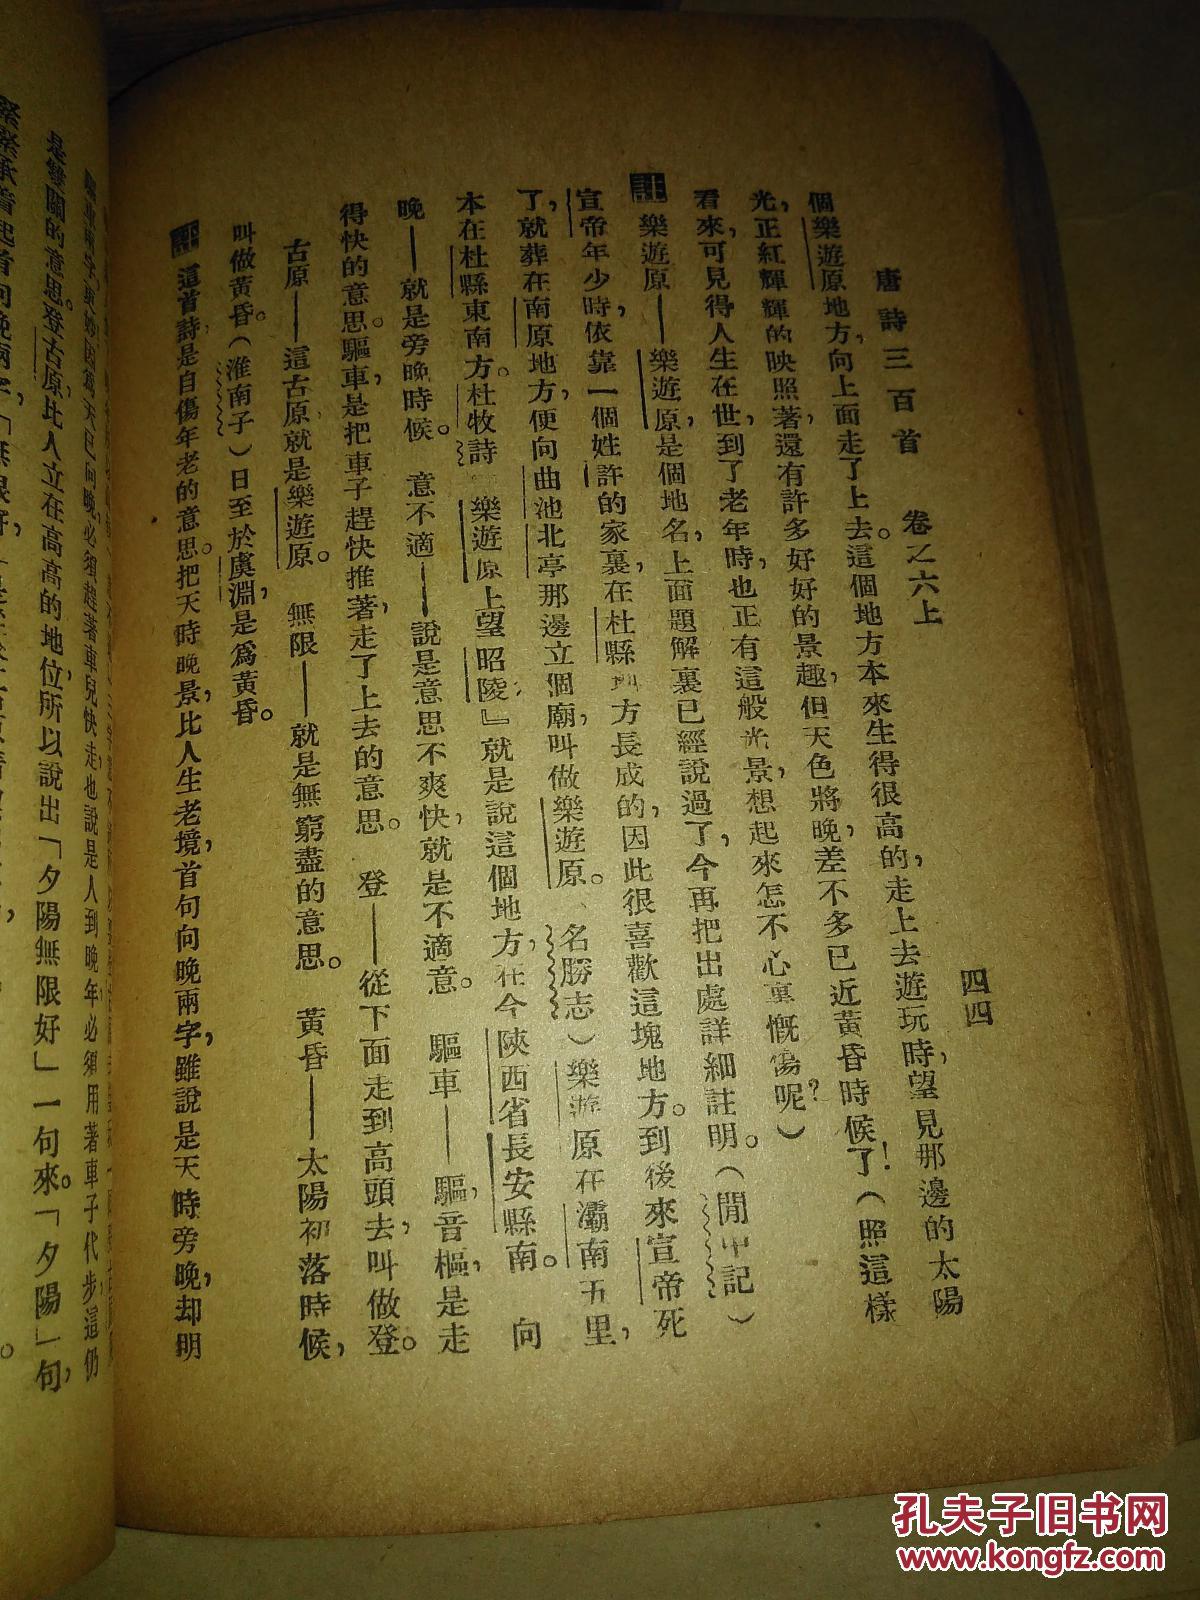 四四
唐詩三百首　卷之六上
個樂遊原地方，向上面走了上去。這個地方本來生得很高的，走上去遊玩時，望見那邊的太陽
光，正紅輝輝的映照著，還有許多好好的景趣，但天色將晚，差不多已近黃昏時候了！（照這樣
看來，可見得人生在世，到了老年時，也正有這般光景，想起來怎不心裏慨傷呢？）
註 樂遊原——樂遊原，是個地名，上面題解裏已經說過了，今再把出處詳細註明。（關中記）
宣帝年少時，依靠一個姓許的家裏，在杜縣地方長成的，因此很喜歡這塊地方。到後來宣帝死
了，就葬在南原地方，便向曲池北亭那邊立個廟，叫做樂遊原。　名勝志）樂遊原在灞南五里，
本在杜縣東南方。杜牧詩　樂遊原上望昭陵』就是說這個地方，在今陝西省長安縣南。　向
晚——就是旁晚時候。　意不適——說是意思不爽快，就是不適意。　驅車——驅，音樞，是走
得快的意思。驅車，是把車子趕快推著，走了上去的意思。　登——從下面走到高頭去，叫做登。
古原——這古原就是樂遊原。　無限——就是無窮盡的意思。　黃昏——太陽初落時候，
叫做黃昏。（淮南子）日至於虞淵，是爲黃昏。
這首詩，是自傷年老的意思。把天時晚景，比人生老境，首句向晚兩字，雖說是天時旁晚，却明
因爲天已向晚，必須趕著車兒快走，也說是人到晚年，必須用著車子代步，這仍
是雙關的意思。登古原，比人立在高高的地位，所以說出「夕陽無限好」一句來。「夕陽」句，
緊緊承着起首向晚兩字，「無限好」
孔夫子旧书网
www.kongfz.com